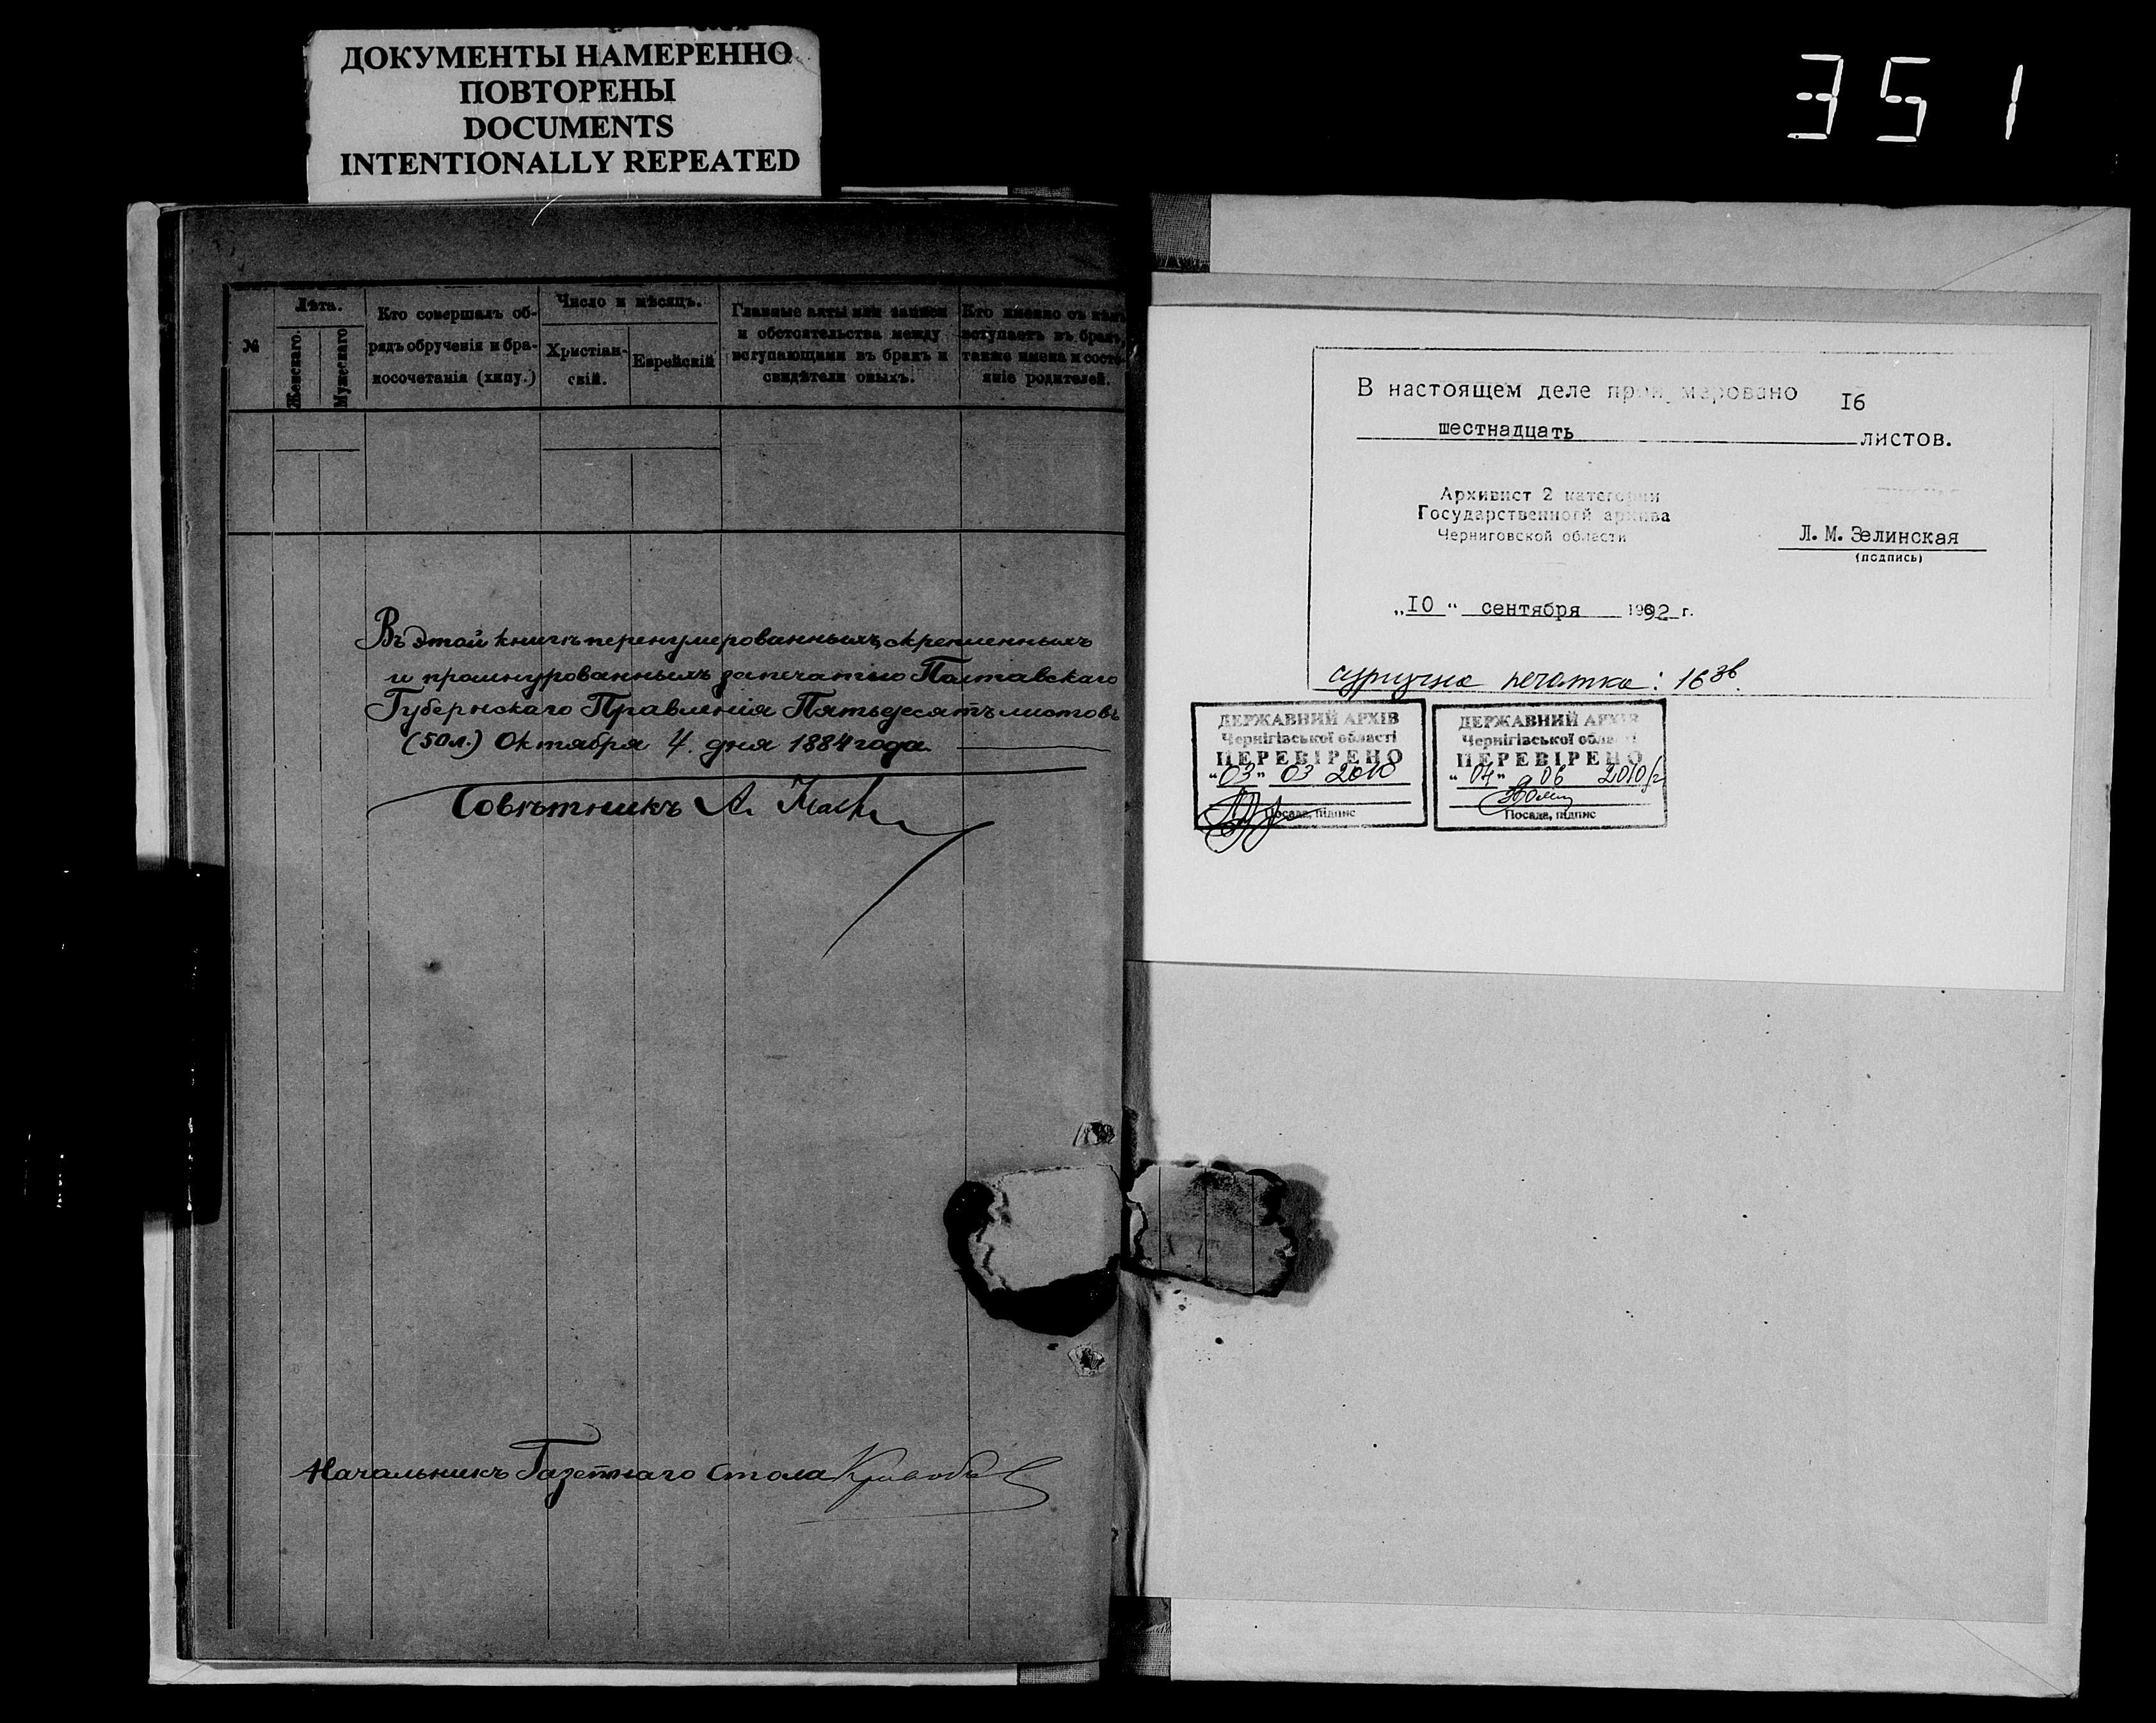 ДОКУМЕНТЫ НАМЕРЕННО
ПОВТОРЕНЫ
DOCUMENTS
INTENTIONALLY REPEATED
351
№
Лѣта.
Женскаго.
Мужескаго
Кто совершалъ об-
рядъ обрученія и бра-
косочетанія (хипу.)
Число и мѣсяцъ.
Христіан-
скій.
Еврейскій
Главные акты или записи
и обстоятельства между
вступающими въ бракъ и
свидѣтели оныхъ.
Кто именно съ кѣмъ
вступаетъ въ бракъ,
также имена и состо-
яніе родителей.
Въ этой книгѣ перенумерованныхъ, скрепленныхъ
и прошнурованныхъ за печатью Полтавскаго
Губернскаго Правленія Пятьдесятъ листовъ
(50 л.) Октября 4. дня 1884 года.
Совѣтникъ А.
Начальникъ Газетнаго Стола
В настоящем деле пронумеровано 16
шестнадцать листов.
Архивист 2 категории
Государственной архива
Черниговской области
Л. М. Зелинская
(подпись)
„10“ сентября 1992 г.
сургучна печатка: 16 зв.
ДЕРЖАВНИЙ АРХІВ
Чернігівської області
ПЕРЕВІРЕНО
"03" 03 2010
Посада, підпис
ДЕРЖАВНИЙ АРХІВ
Чернігівської області
ПЕРЕВІРЕНО
"04" 06 2010
Посада, підпис